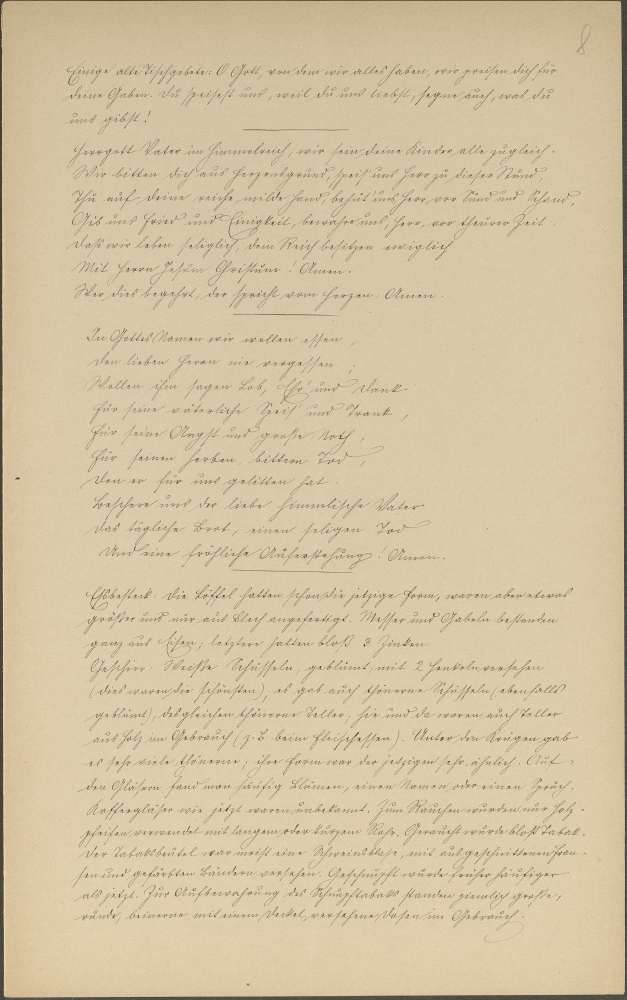 8
Einige alte Tischgebete: O Gott, von dem wir alles haben, wir preisen dich für
deine Gaben. Du speisest uns, weil du uns liebst, segne auch, was du
uns gibst!
Herrgott Vater im Himmelreich, wir sein deine Kinder alle zugleich.
Wir bitten dich aus Herzensgrund, speis' uns Herr zu dieser Stund,
Thu auf deine reiche milde Hand, behüt' uns Herr, vor Sünd und Schand,
Gib uns Fried und Einigkeit, bewahre uns, Herr, vor theurer Zeit.
Daß wir leben seliglich, dein Reich besitzen ewiglich
Mit Herrn Jesum Christum. Amen.
Wer dies begehrt, der spricht vom Herzen: Amen.
In Gottes Namen wir wollen essen,
den lieben Herrn nie vergessen;
Wollen ihm sagen Lob, Ehr' und Dank
für seine väterliche Speis' und Trank,
für seine Angst und große Noth,
für seinen herben, bittern Tod,
den er für uns gelitten hat.
Beschere uns der liebe himmlische Vater
das tägliche Brot, einen seligen Tod
Und eine fröhliche Auferstehung! Amen.
Eßbesteck. Die Löffel hatten schon die jetzige Form, waren aber etwas
größer und nur aus Blech angefertigt. Messer und Gabeln bestanden
ganz aus Eisen; letztere hatten bloß 3 Zinken.
Geschirr. Weiße Schüsseln, geblümt, mit 2 Henkeln versehen
(dies waren die schönsten), es gab auch thönerne Schüsseln (ebenfalls
geblümt), desgleichen thönerne Teller, hie und da waren auch Teller
aus Holz im Gebrauch (z. B. beim Fleischessen). Unter den Krügen gab
es sehr viele thönerne; ihre Form war der jetzigen sehr ähnlich. Auf
den Gläsern fand man häufig Blumen, einen Namen oder einen Spruch.
Kaffeegläser wie jetzt waren unbekannt. Zum Rauchen wurden nur Holz-
pfeifen verwendet mit langem oder kurzem Rohr. Geraucht wurde bloß Tabak.
Der Tabaksbeutel war meist eine Schweinsblase, mit ausgeschnittenen Fran-
sen und gefärbten Bändern versehen. Geschnupft wurde früher häufiger
als jetzt. Zur Aufbewahrung des Schnupftabaks standen ziemlich große,
runde, beinerne mit einem Deckel versehene Dosen im Gebrauch.